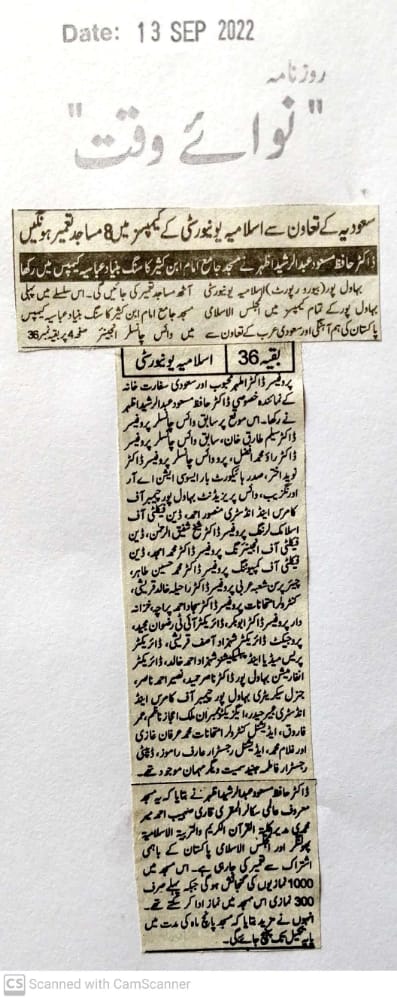 Date: 13 SEP 2022
روزنامہ
"نوائے وقت"
سعودیہ کے تعاون سے اسلامیہ یونیورسٹی کے کیمپسز میں 8 مساجد تعمیر ہونگیں
ڈاکٹر حافظ مسعود عبدالرشید اظہر نے مسجد جامع امام ابن کثیر کا سنگ بنیاد عباسیہ کیمپس میں رکھا
بہاول پور (بیورو رپورٹ) اسلامیہ یونیورسٹی
بہاول پور کے تمام کیمپسز میں المجلس الاسلامی
پاکستان کی ہم آہنگی اور سعودی عرب کے تعاون سے
آٹھ مساجد تعمیر کی جائیں گی۔ اس سلسلے میں پہلی
مسجد جامع امام ابن کثیر کا سنگ بنیاد عباسیہ کیمپس
میں وائس چانسلر انجینئر صفحہ 4 پر بقیہ نمبر 36
بقیہ 36 اسلامیہ یونیورسٹی
پروفیسر ڈاکٹر اطہر محبوب اور سعودی سفارت خانہ
کے نمائندہ خصوصی ڈاکٹر حافظ مسعود عبدالرشید اظہر
نے رکھا۔ اس موقع پر سابق وائس چانسلر پروفیسر
ڈاکٹر سلیم طارق خان، سابق وائس چانسلر پروفیسر
ڈاکٹر راؤ محمد افضل، پرو وائس چانسلر پروفیسر ڈاکٹر
نوید اختر، صدر ہائیکورٹ بار ایسوسی ایشن اے آر
اورنگزیب، وائس پریزیڈنٹ بہاول پور چیمبر آف
کامرس اینڈ انڈسٹری منصور احمد، ڈین فیکلٹی آف
اسلامک لرننگ پروفیسر ڈاکٹر شیخ شفیق الرحمن، ڈین
فیکلٹی آف انجینئرنگ پروفیسر ڈاکٹر محمد امجد، ڈین
فیکلٹی آف کمپیوٹنگ پروفیسر ڈاکٹر محمد حسین طاہر،
چیئرپرسن شعبہ عربی پروفیسر ڈاکٹر راحیلہ خالد قریشی،
کنٹرولر امتحانات پروفیسر ڈاکٹر سجاد احمد پراچہ، خزانہ
دار پروفیسر ڈاکٹر ابوبکر، ڈائریکٹر آئی ٹی رضوان مجید،
پروجیکٹ ڈائریکٹر شہزاد آصف قریشی، ڈائریکٹر
پریس میڈیا اینڈ پبلیکیشنز شہزاد احمد خالد، ڈائریکٹر
انفارمیشن بہاول پور ڈاکٹر ناصر حمید، نصیر احمد ناصر،
جنرل سیکریٹری بہاول پور چیمبر آف کامرس اینڈ
انڈسٹری حیدر، ایگزیکٹو ممبران ملک اعجاز ناظم، عمر
فاروق، ایڈیشنل کنٹرولر امتحانات محمد عرفان غازی
اور غلام محمد، ایڈیشنل رجسٹرار عارف راموز، ڈپٹی
رجسٹرار فاطمہ سمیت دیگر مہمان موجود تھے۔
ڈاکٹر حافظ مسعود عبدالرشید اظہر نے بتایا کہ یہ مسجد
معروف عالمی سکالر المقری قاری صہیب احمد میر
محمدی مدیر کلیۃ القرآن الکریم والتربیۃ الاسلامیۃ
پھولنگر اور المجلس الاسلامی پاکستان کے باہمی
اشتراک سے تعمیر کی جا رہی ہے۔ اس مسجد میں
1000 نمازیوں کی گنجائش ہو گی جبکہ پہلے صرف
300 نمازی اس میں نماز ادا کر سکتے تھے۔
انہوں نے مزید بتایا کہ مسجد پانچ ماہ کی مدت میں
پایہ تکمیل تک پہنچ جائے گی۔
CS Scanned with CamScanner